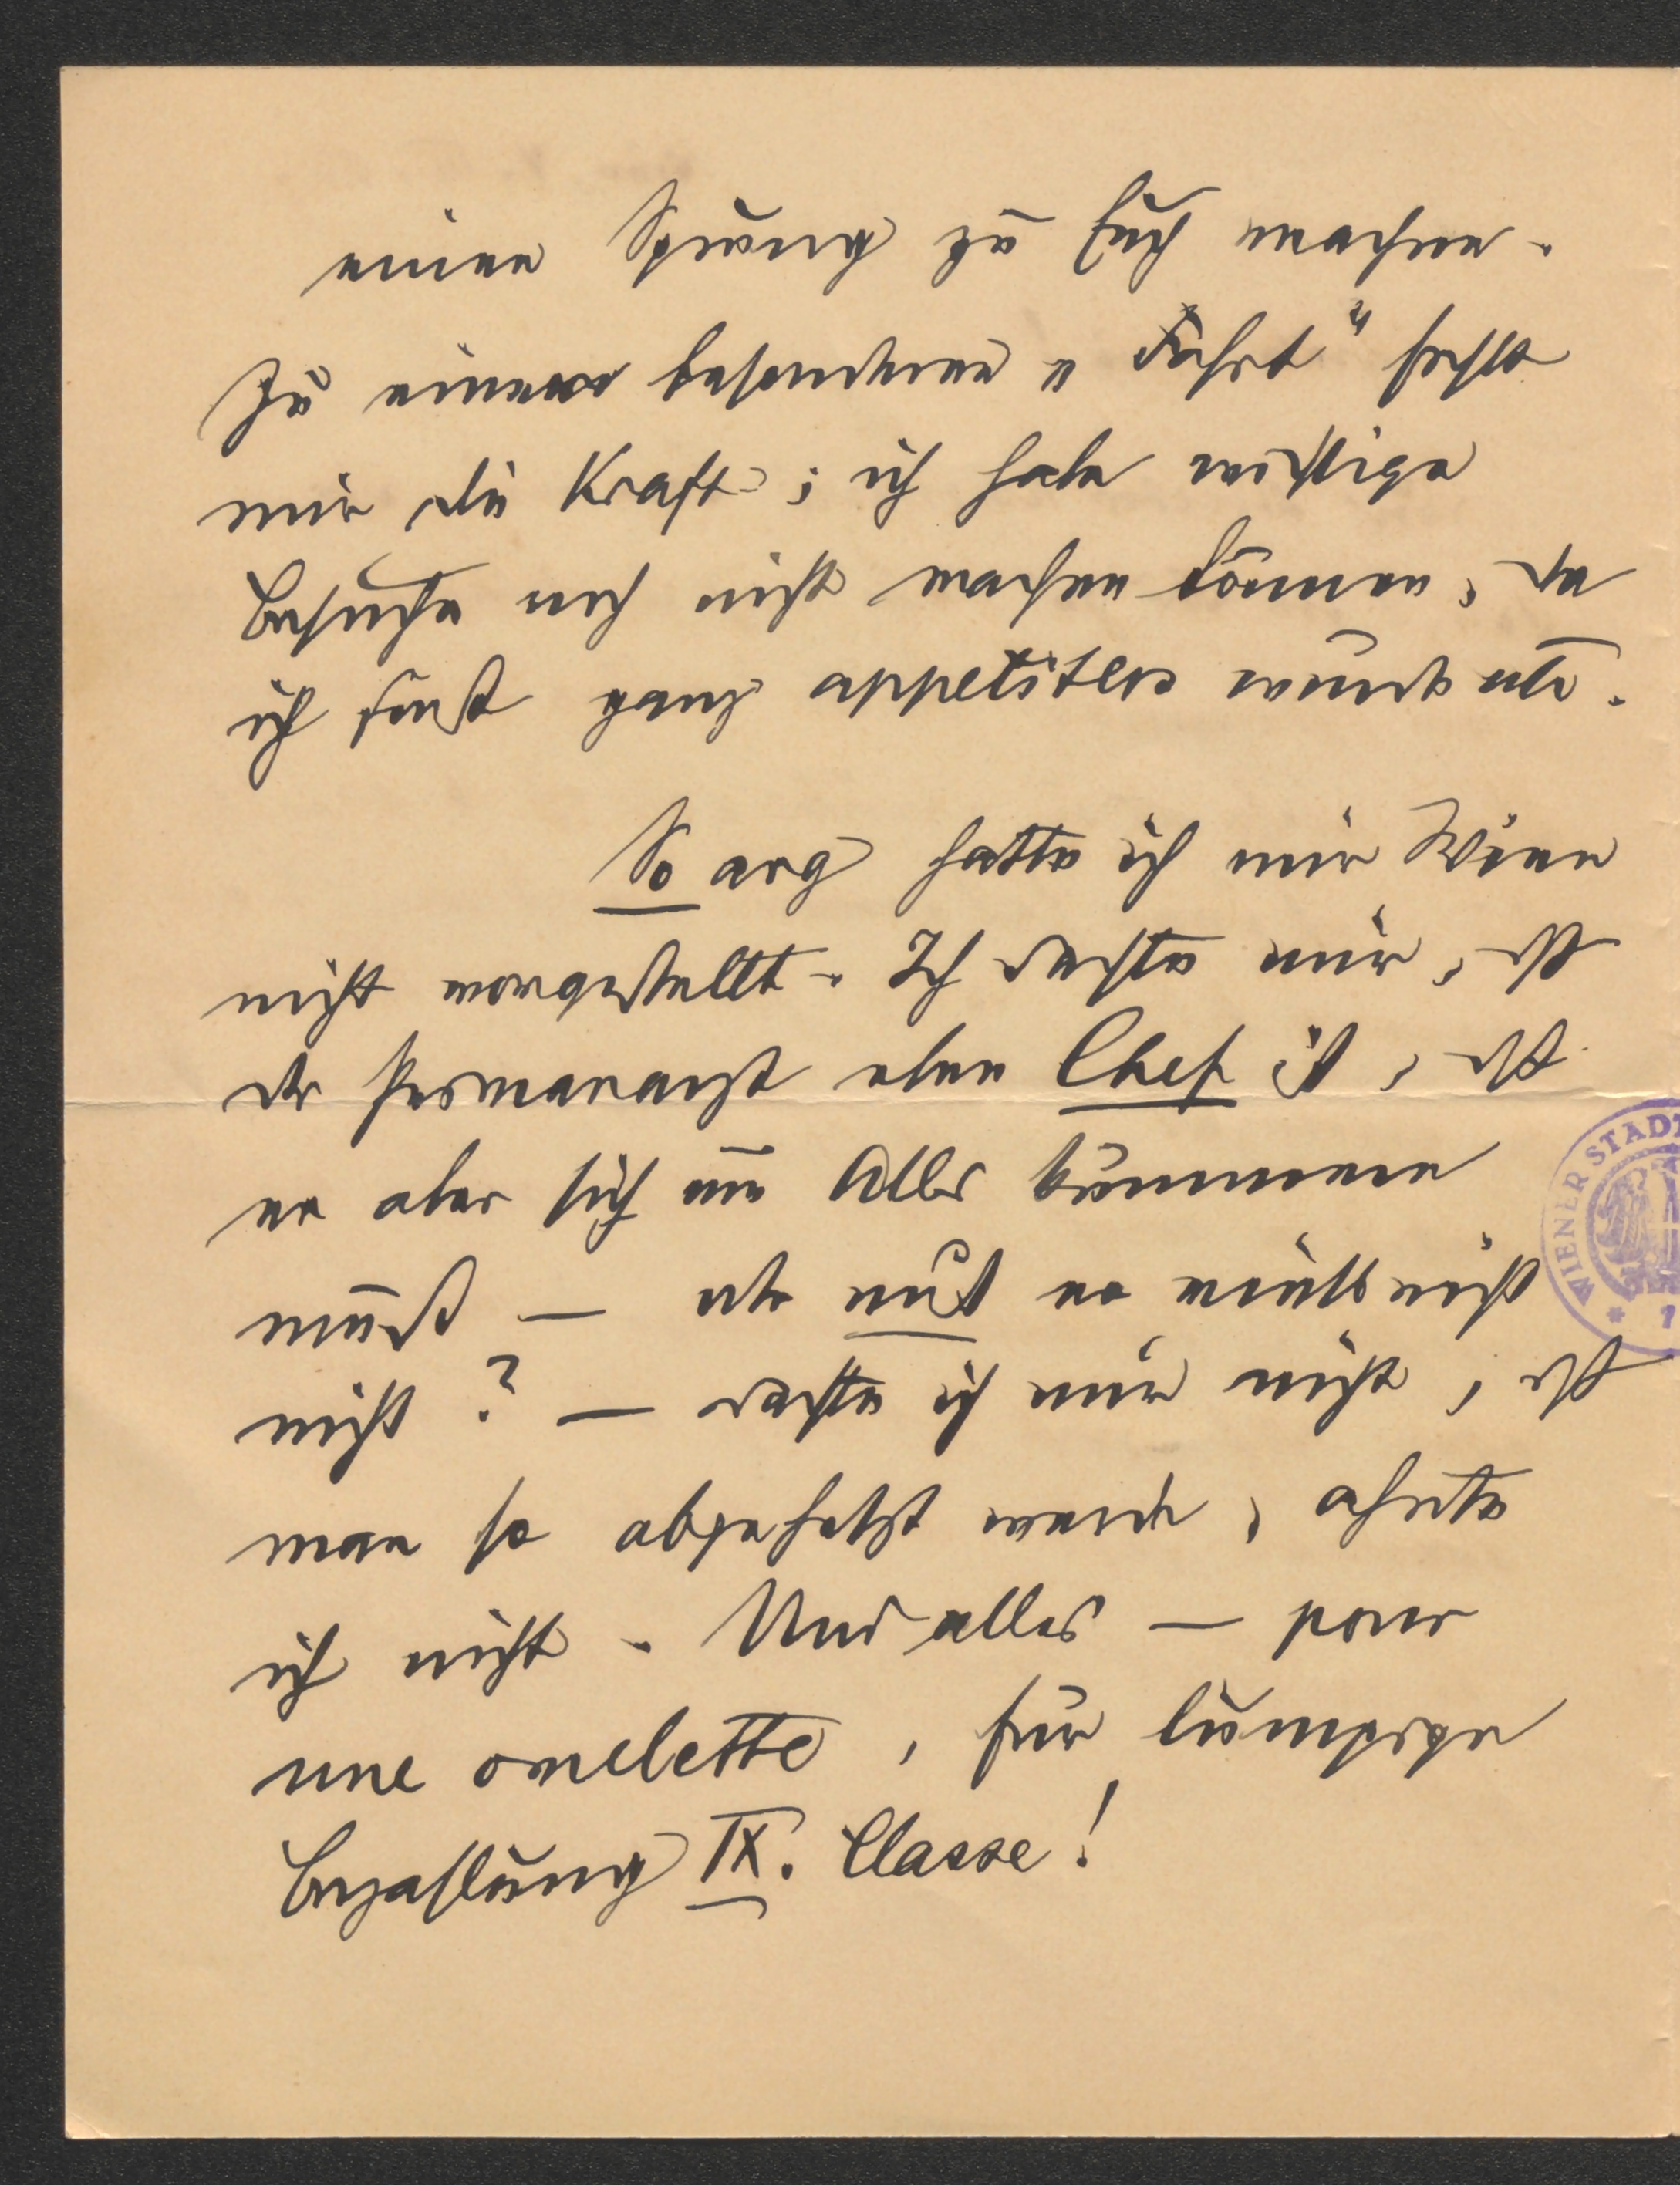 einen Sprung zu Euch machen.
Zu einer besonderen „Fahrt" fehlt
mir die Kraft; ich habe wichtige
Besuche noch nicht machen können, da
ich sonst ganz appetitlos würde etc.
So arg hatte ich mir Wien
nicht vorgestellt. Ich dachte mir, dß
der Primararzt eben Chef ist, dß
er aber sich um Alles kümmern
muß – das muß er
nicht? – dachte ich mir nicht, dß
man so abgehetzt werde, ahnte
ich nicht. Und alles – pour
une omelette, für lumpige
Bezahlung IX. Classe!
WIENER STADT